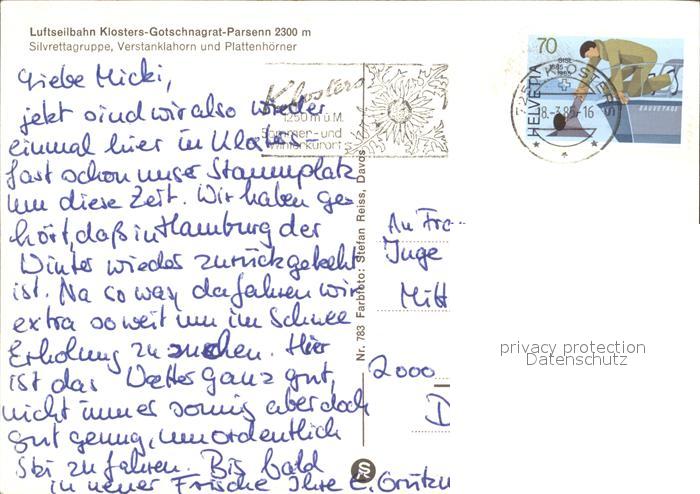 Luftseilbahn Klosters-Gotschnagrat-Parsenn 2300 m
Silvrettagruppe, Verstanklahorn und Plattenhörner
Liebe Micki,
jetzt sind wir also wieder
einmal hier in Klosters –
fast schon unser Stammplatz
um diese Zeit. Wir haben ge=
hört, daß in Hamburg der
Winter wieder zurückgekehrt
ist. Na so was, da fahren wir
extra so weit um im Schnee
Erholung zu suchen. Hier
ist das Wetter ganz gut,
nicht immer sonnig aber doch
gut genug, um ordentlich
Ski zu fahren. Bis bald
in neuer Frische Ihre E. Grützm
Klosters
1250 m ü.M.
Sommer- und
Winterkurort
Nr. 783 Farbfoto: Stefan Reiss, Davos
70
HELVETIA
BAGUETAGE
KLOSTERS
18.-3.85-16
An Fra
Inge
Mitt
2000
D
privacy protection
Datenschutz